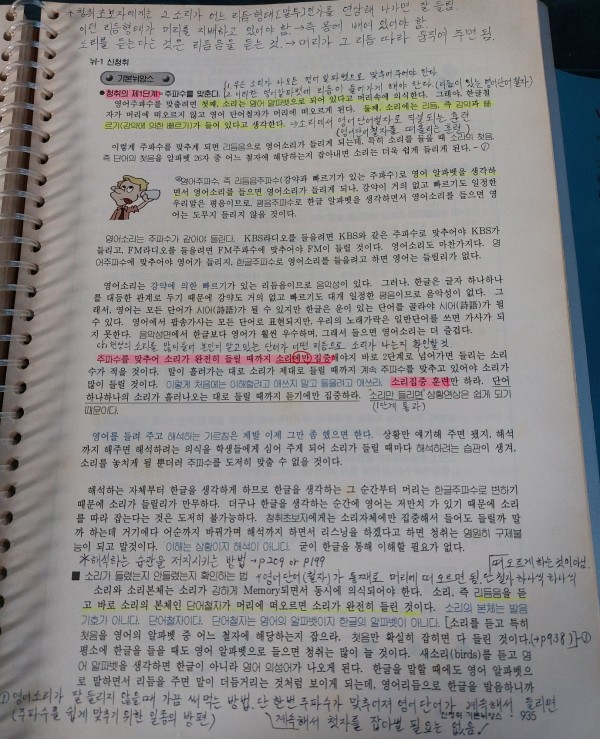 * 청취초보자에게는 2.소리가 어느 리듬형태[말투]인가를 연상해 나가면 잘 들림.
이런 리듬형태가 머리를 지배하고 있어야 함 → 즉 몸에 배어 있어야 함.
소리를 듣는다는 것은 리듬음을 듣는 것. → 머리가 그 리듬 따라 움직여 주면 됨.
뉴-1 신청취
기본뉘앙스
1. 무슨 소리가 나오든 영어 알파벳으로 맞추어 주어야 한다.
● 청취의 제1단계> 주파수를 맞춘다. 2. 이러한 영어알파벳에 리듬이 들어가게 해야 한다. (리듬이 있는 영어단어철자)
영어주파수를 맞출려면 첫째, 소리는 영어 알파벳으로 되어 있다고 머리속에 의식한다. 그래야, 한글철
자가 머리에 떠오르지 않고 영어 단어철자가 머리에 떠오르게 된다. 둘째, 소리에는 리듬, 즉 강약과 빠
르기(강약에 의한 빠르기)가 들어 있다고 생각한다. → 소리에서 영어단어철자로 직결되는 훈련
(영어단어철자를 떠올리는 훈련)
이렇게 주파수를 맞추게 되면 리듬음으로 영어소리가 들리게 되는데, 특히 소리를 들을 때 소리의 첫음,
즉 단어의 첫음을 알파벳 26자 중 어느 철자에 해당하는지 잡아내면 소리는 더욱 쉽게 들리게 된다. - ①
영어주파수, 즉 리듬음주파수(강약과 빠르기가 있는 주파수)로 영어 알파벳을 생각하
면서 영어소리를 들으면 영어소리가 들리게 되나, 강약이 거의 없고 빠르기도 일정한
우리말은 평음이므로, 평음주파수로 한글 알파벳을 생각하면서 영어소리를 들으면 영
어는 도무지 들리지 않을 것이다.
영어소리는 주파수가 같아야 들린다. KBS라디오를 들을려면 KBS와 같은 주파수로 맞추어야 KBS가
들리고, FM라디오를 들을려면 FM주파수에 맞추어야 FM이 들릴 것이다. 영어소리도 마찬가지다. 영
어주파수에 맞추어야 영어가 들리지, 한글주파수로 영어소리를 들을려고 하면 영어는 들릴리가 없다.
영어소리는 강약에 의한 빠르기가 있는 리듬음이므로 음악성이 있다. 그러나, 한글은 글자 하나하나
를 대등한 관계로 두기 때문에 강약도 거의 없고 빠르기도 대개 일정한 평음이므로 음악성이 없다. 그
래서, 영어는 모든 단어가 시어(詩語)가 될 수 있지만 한글은 운이 있는 단어를 골라야 시어(詩語)가 될
수 있다. 영어에서 팝송가사는 모든 단어로 표현되지만, 우리의 노래가락은 일반단어를 쓰면 가사가 되
지 못한다. 음악성면에서 한글보다 영어가 훨씬 우수하며, 그래서 들으면 영어소리는 더 즐겁다.
현상의 소리를 많이 들어 보면서 알고 있는 단어가 어떤 리듬으로 소리가 나는지 확인할 것.
주파수를 맞추어 소리가 완전히 들릴 때까지 소리에만 집중해야지 바로 2단계로 넘어가면 들리는 소리
수가 적을 것이다. 말이 흘러가는 대로 소리가 제대로 들릴 때까지 계속 주파수를 맞추고 있어야 소리가
많이 들릴 것이다. 이렇게 처음에는 이해할려고 애쓰지 말고 들을려고 애쓰라. 소리집중 훈련만 하라. 단어
하나하나의 소리가 흘러나오는 대로 들릴 때까지 듣기에만 집중하라. 소리만 들리면 상황연상은 쉽게 되기
때문이다. (1단계 통과)
영어를 들려 주고 해석하는 가르침은 제발 이제 그만 좀 했으면 한다. 상황만 얘기해 주면 됐지, 해석
까지 해주면 해석하려는 의식을 학생들에게 심어 주게 되어 소리가 들릴 때마다 해석하려는 습관이 생겨,
소리를 놓치게 될 뿐더러 주파수를 도저히 맞출 수 없을 것이다.
해석하는 자체부터 한글을 생각하게 하므로 한글을 생각하는 그 순간부터 머리는 한글주파수로 변하기
때문에 소리가 들릴리가 만무하다. 더구나 한글을 생각하는 순간에 영어는 저만치 가 있기 때문에 소리
를 따라 잡는다는 것은 도저히 불가능하다. 청취초보자에게는 소리자체에만 집중해서 들어도 들릴까 말
까 하는데 거기에다 어순까지 바꿔가며 해석까지 하면서 리스닝을 하겠다고 하면 청취는 영원히 구제불
능이 되고 말것이다. 이해는 상황이지 해석이 아니다. 굳이 한글을 통해 이해할 필요가 없다.
* 해석하는 습관을 저지시키는 방법 → p209 or p199
떠오르게 하는 것이 아님.
■ 소리가 들렸는지 안들렸는지 확인하는 법 + 영어단어(철자)가 통째로 머리에 떠오르면 됨. 단 철자 하나씩 하나씩
소리와 소리본체는 소리가 강하게 Memory되면서 동시에 의식되어야 한다. 소리, 즉 리듬음을 듣
고 바로 소리의 본체인 단어철자가 머리에 떠오르면 소리가 완전히 들린 것이다. 소리의 본체는 발음
기호가 아니다. 단어철자이다. 단어철자는 영어의 알파벳이지 한글의 알파벳이 아니다. [소리를 듣고 특히
첫음을 영어의 알파벳 중 어느 철자에 해당하는지 잡으라. 첫음만 확실히 잡히면 다 들린 것이다.(→p938)] - ①
평소에 한글을 들을 때도 영어 알파벳으로 들으면 청취는 많이 늘 것이다. 새소리(birds)를 듣고 영
어 알파벳을 생각하면 한글이 아니라 영어 의성어가 나오게 된다. 한글을 말할 때에도 영어 알파벳으
로 말하면서 리듬을 주면 말이 더듬거리는 것처럼 보이게 되는데, 영어리듬으로 한글을 발음하니까
① 영어소리가 잘 들리지 않을 때 가끔 써먹는 방법. 단 한번 주파수가 맞추어져 영어단어가 계속해서 들리면
(주파수를 쉽게 맞추기 위한 일종의 방편) 계속해서 첫자를 잡아낼 필요는 없음!
신청취 기본뉘앙스 935